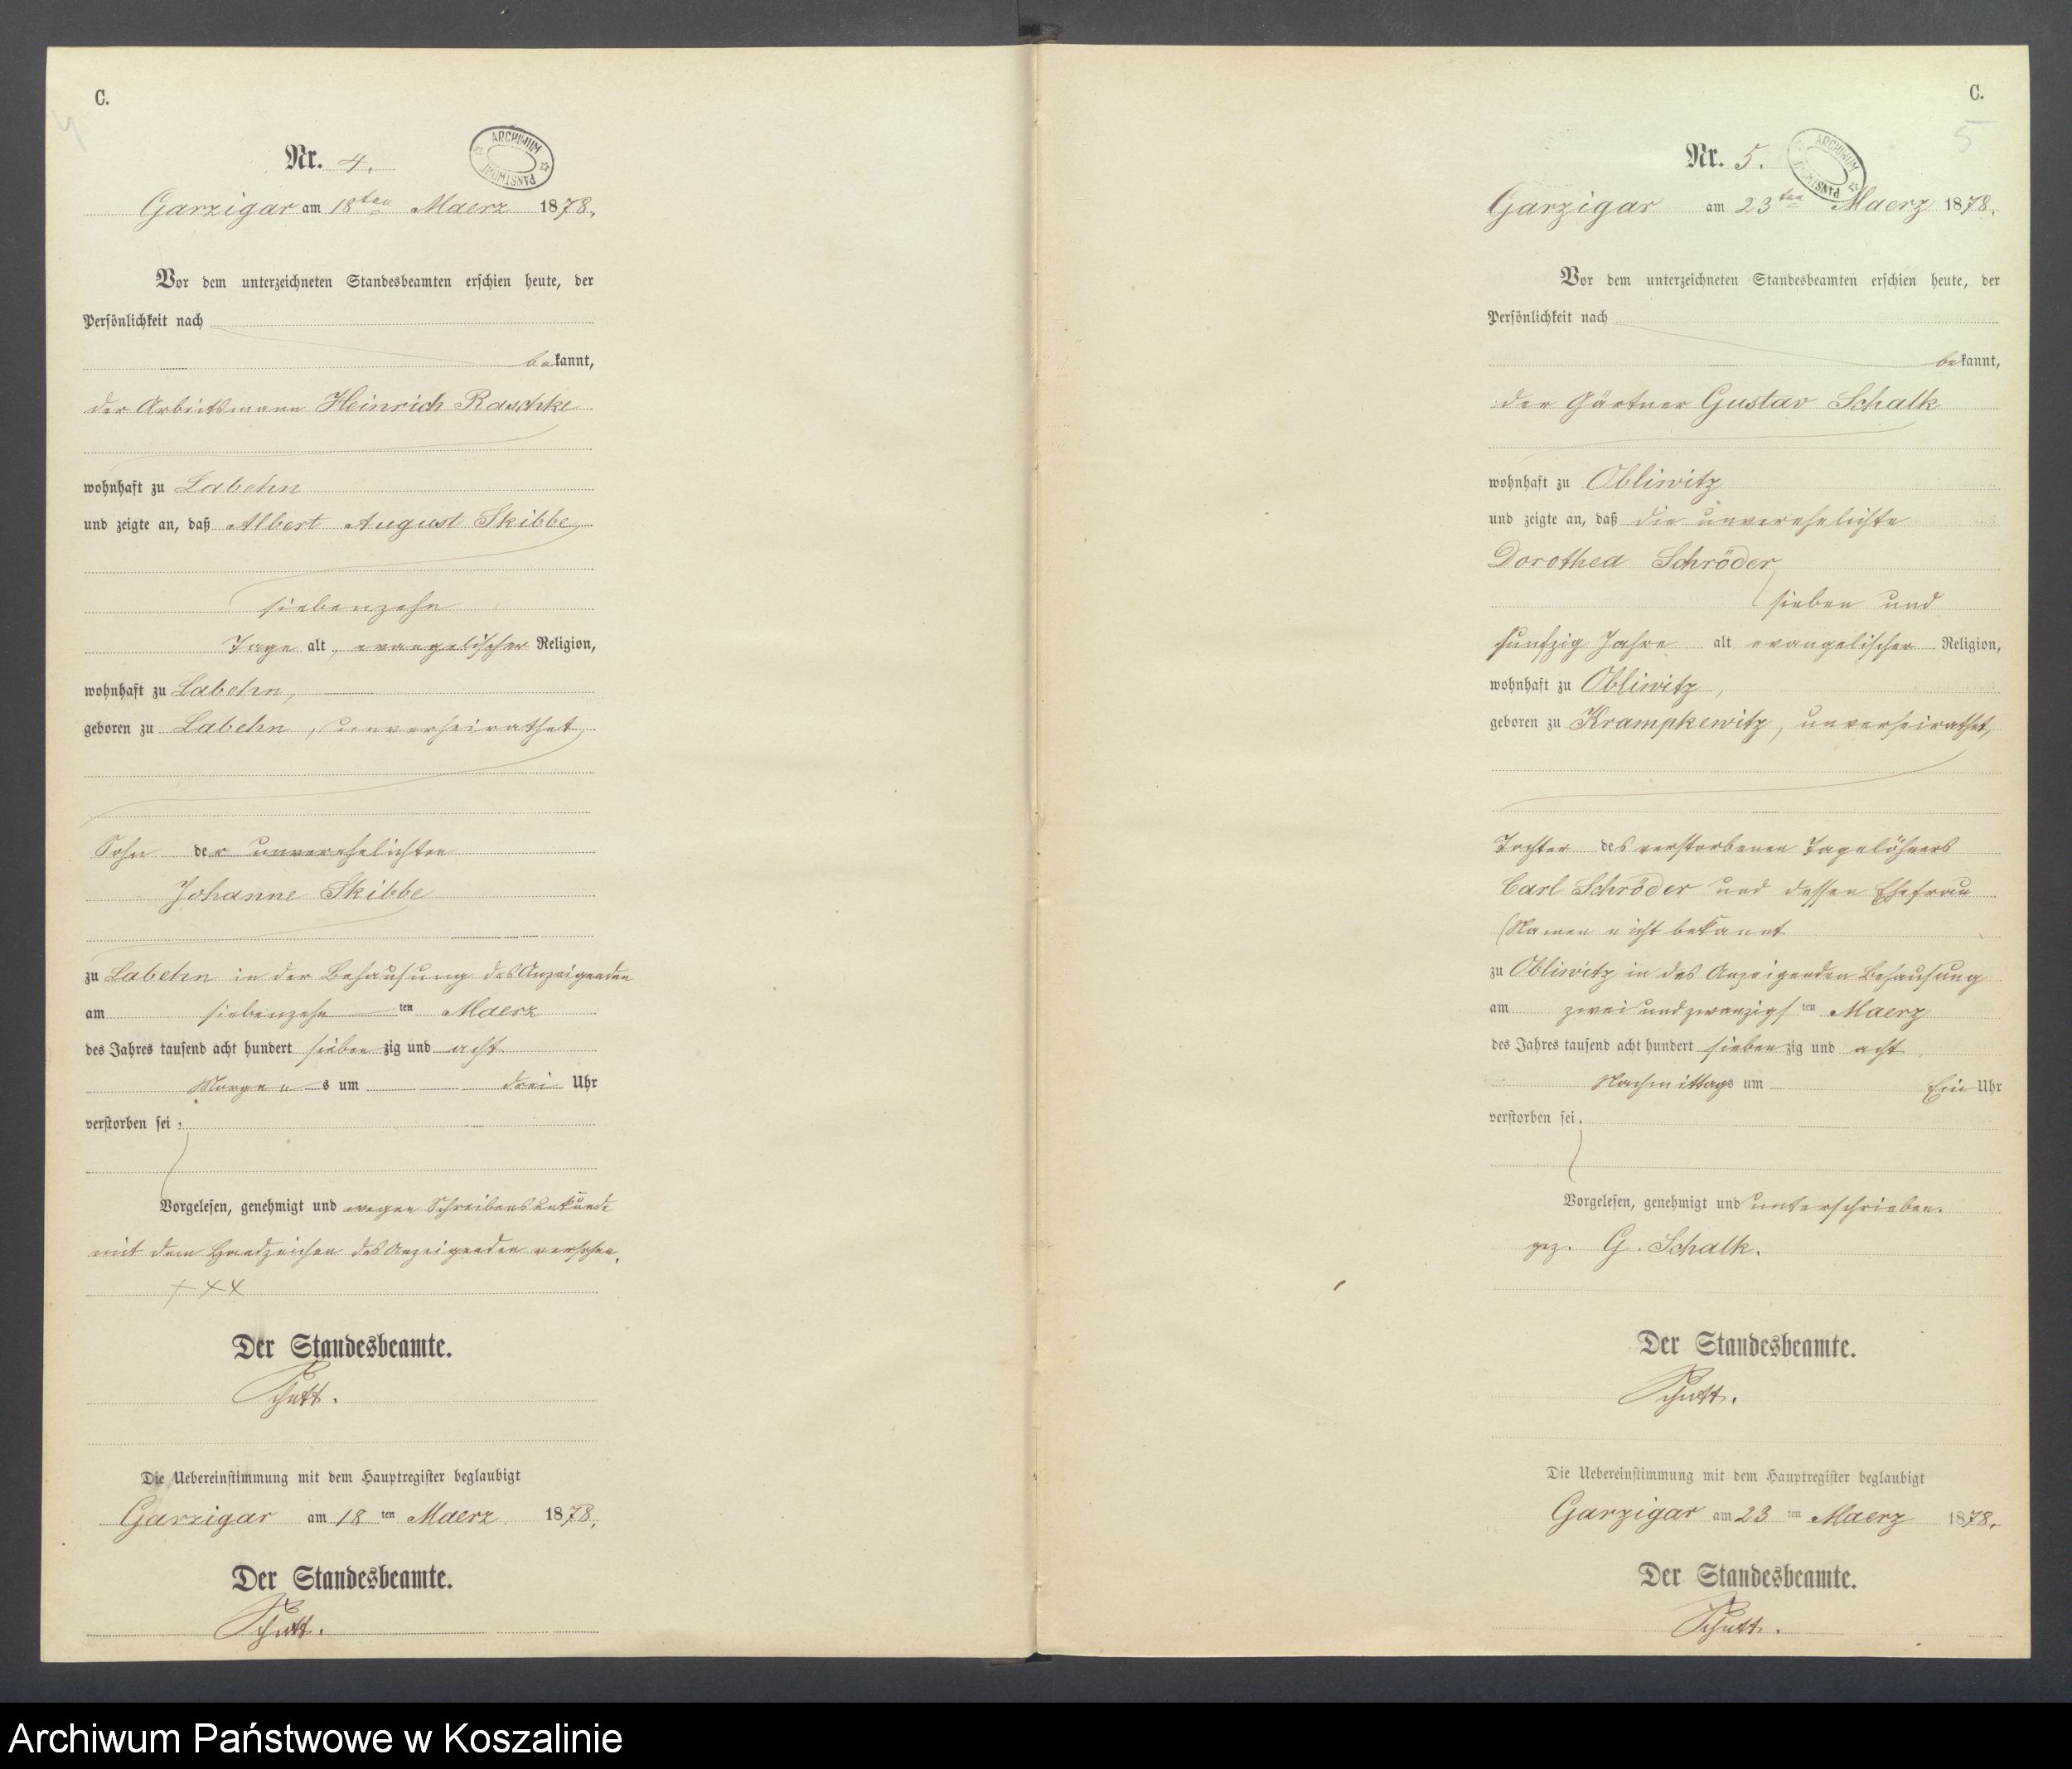 C.
4
Nr. 4.
ARCHIWUM PAŃSTWOWE
Garzigar am 18ten Maerz 1878.
Vor dem unterzeichneten Standesbeamten erschien heute, der
Persönlichkeit nach
bekannt,
der Arbeitsmann Heinrich Raschke
wohnhaft zu Labehn
und zeigte an, daß Albert August Skibbe,
siebenzehn
Tage alt, evangelischer Religion,
wohnhaft zu Labehn,
geboren zu Labehn, unverheirathet,
Sohn der unverehelichten
Johanne Skibbe
zu Labehn in der Behausung des Anzeigenden
am siebenzehn ten Maerz
des Jahres tausend acht hundert sieben zig und acht
Morgens um drei Uhr
verstorben sei.
Vorgelesen, genehmigt und wegen Schreibensunkunde
mit dem Handzeichen des Anzeigenden versehen.
+++
Der Standesbeamte.
Schutt.
Die Uebereinstimmung mit dem Hauptregister beglaubigt
Garzigar am 18 ten Maerz 1878.
Der Standesbeamte.
Schutt.
C.
5
Nr. 5.
ARCHIWUM PAŃSTWOWE
Garzigar am 23ten Maerz 1878.
Vor dem unterzeichneten Standesbeamten erschien heute, der
Persönlichkeit nach
bekannt,
der Gärtner Gustav Schalk
wohnhaft zu Obliwitz
und zeigte an, daß die unverehelichte
Dorothea Schröder
sieben und
fünfzig Jahre alt evangelischer Religion,
wohnhaft zu Obliwitz,
geboren zu Krampkewitz, unverheirathet,
Tochter des verstorbenen Tagelöhners
Carl Schröder und dessen Ehefrau
(Namen nicht bekannt
zu Obliwitz in des Anzeigenden Behausung
am zwei und zwanzigsten Maerz
des Jahres tausend acht hundert sieben zig und acht
Nachmittags um Ein Uhr
verstorben sei.
Vorgelesen, genehmigt und unterschrieben.
gez. G. Schalk.
Der Standesbeamte.
Schutt.
Die Uebereinstimmung mit dem Hauptregister beglaubigt
Garzigar am 23 ten Maerz 1878.
Der Standesbeamte.
Schutt.
Archiwum Państwowe w Koszalinie